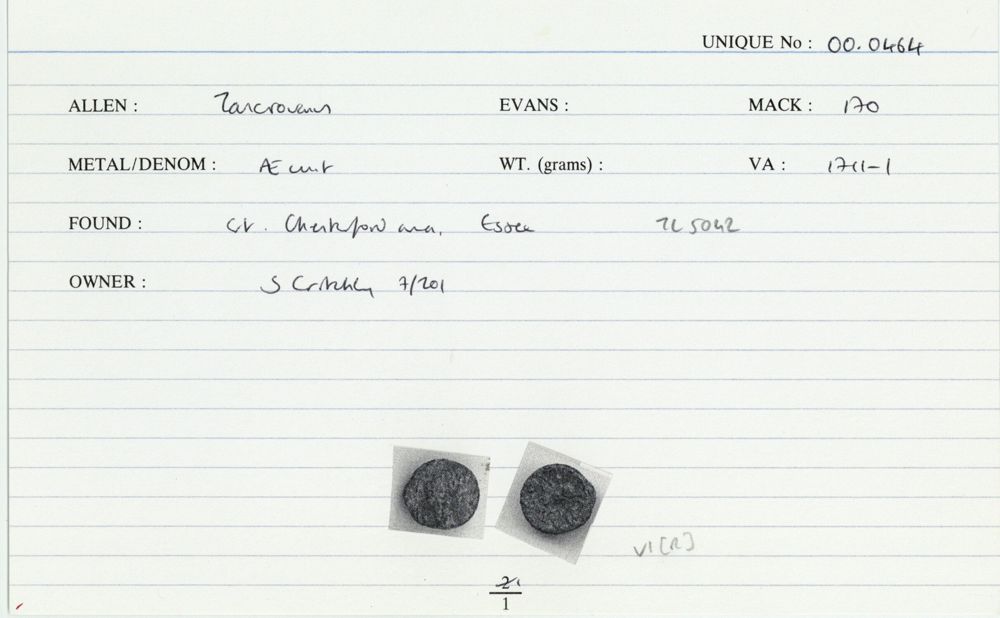 UNIQUE No : 00.0464
ALLEN : Tasciovanus EVANS : MACK : 170
METAL/DENOM : Æ unit WT. (grams) : VA : 1711-1
FOUND : Gt. Chesterford area, Essex TL 5042
OWNER : S Critchley 7/201
VI [R]
2
1